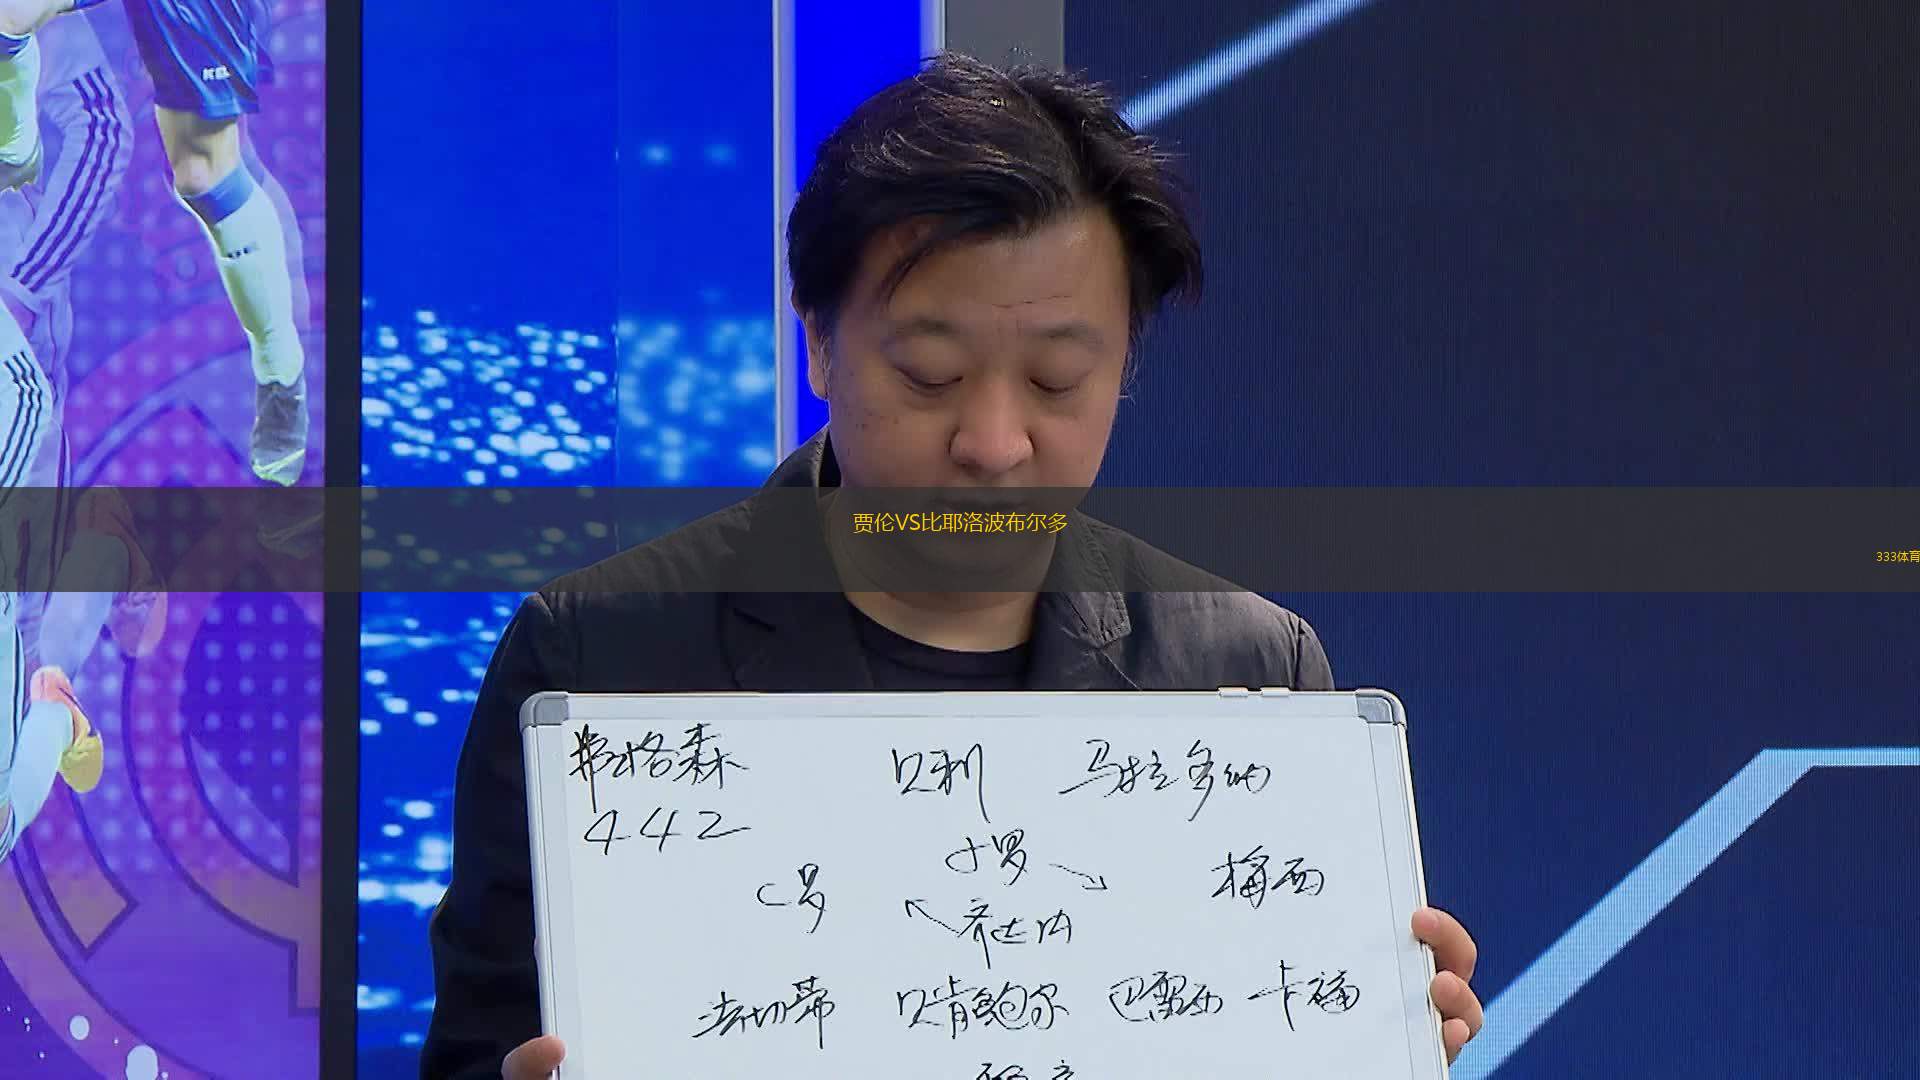 贾伦VS比耶洛波布尔多
333体育
弗格森 贝利 马拉多纳
442
小罗
C罗 梅西
齐达内
法切蒂 贝肯鲍尔 巴雷西 卡福